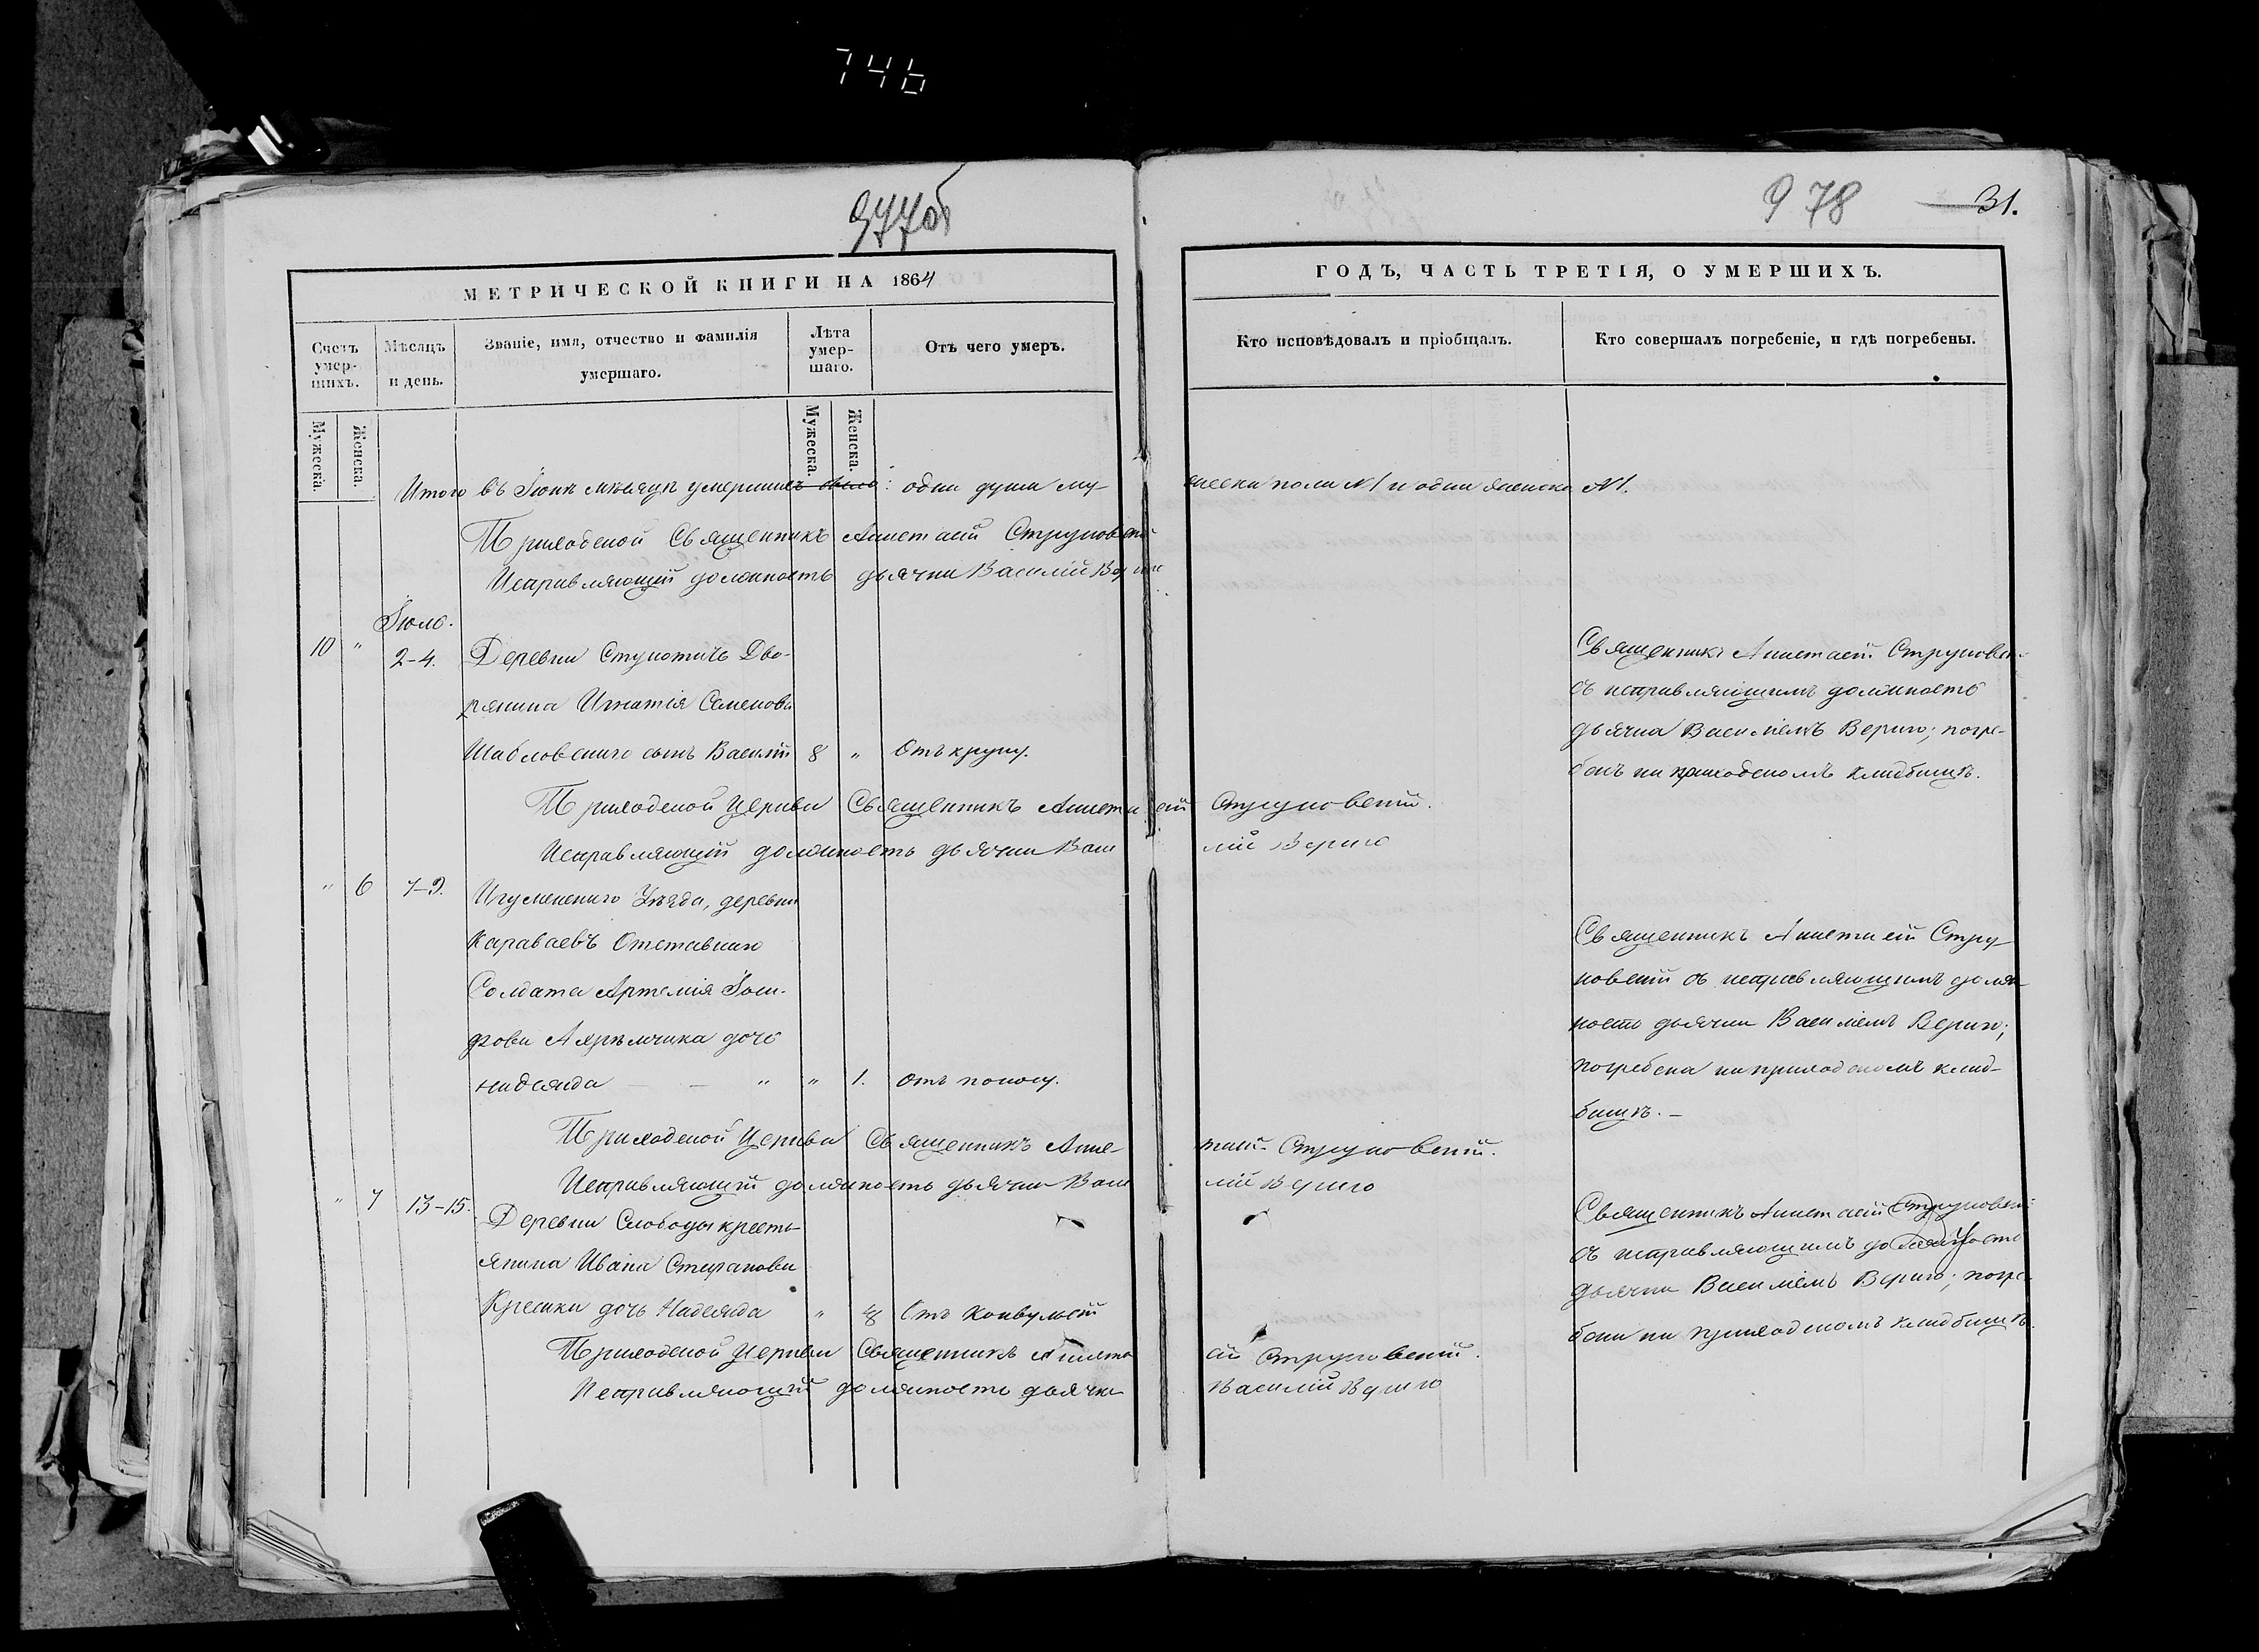 746
977об
978
31.
МЕТРИЧЕСКОЙ КНИГИ НА 1864
ГОДЪ, ЧАСТЬ ТРЕТІЯ, О УМЕРШИХЪ.
Счетъ умер-шихъ.
Мѣсяцъ и день.
Званіе, имя, отчество и фамилія умершаго.
Лѣта умер-шаго.
Отъ чего умеръ.
Кто исповѣдовалъ и пріобщалъ.
Кто совершалъ погребеніе, и гдѣ погребены.
Мужеска.
Женска.
Мужеска.
Женска.
Итого въ Іюнѣ мѣсяцѣ умершихъ было: одна душа му-
жеска пола №1 и одна женска №1.
Приходской Священникъ Анистасій Струковскій
Исправляющій должность дьячка Василій Вериго
Іюль.
10 " 2-4. Деревни Ступотичъ Дво-
рянина Игнатія Семенова
Шабловскаго сынъ Василій 8 " Отъ крупу.
Священникъ Анистасій Струковскі
съ исправляющимъ должность
дьячка Василіемъ Вериго; погре-
бенъ на приходскомъ кладбищѣ.
Приходской Церкви Священникъ Анистасій Струковскій.
Исправляющій должность дьячка Василій Вериго
" 6 7-9. Игуменскаго Уѣзда, деревни
Караваевъ Отставнаго
Солдата Артемія
дочь
Надежда " " 1. Отъ поносу.
Священникъ Анистасій Стру-
ковскій съ исправляющимъ долж-
ность дьячка Василіемъ Вериго;
погребена на приходскомъ клад-
бищѣ. —
Приходской Церкви Священникъ Анистасій Струковскій.
Исправляющій должность дьячка Василій Вериго
" 7 13-15. Деревни Слободы кресть-
янина Ивана Стефанова
дочь Надежда " 8 Отъ конвульсій
Священникъ Анистасій Струковскі
съ исправляющимъ должность
дьячка Василіемъ Вериго; погре-
бена на приходскомъ кладбищѣ.
Приходской Церкви Священникъ Анистасій Струковскій.
Исправляющій должность дьячка Василій Вериго